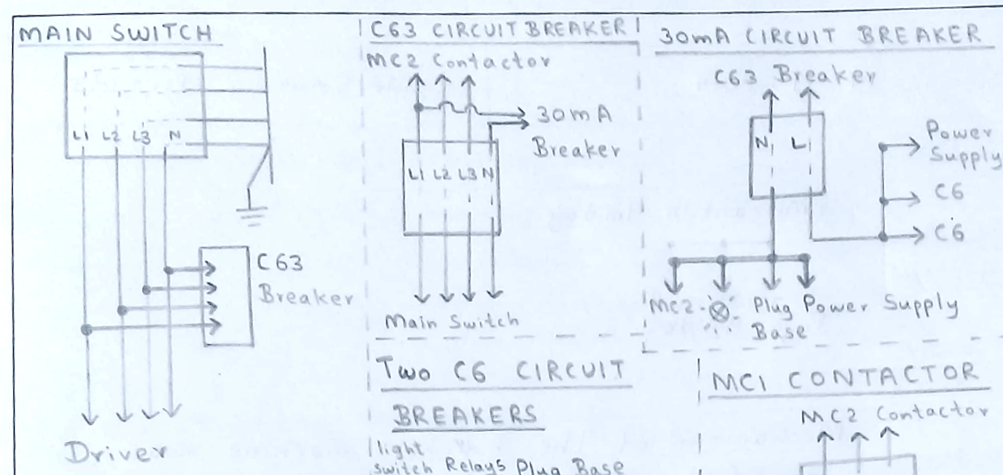 MAIN SWITCH
L1 L2 L3 N
C63
Breaker
Driver
C63 CIRCUIT BREAKER
MC2 Contactor
30mA
Breaker
L1 L2 L3 N
Main Switch
30mA CIRCUIT BREAKER
C63 Breaker
N L
Power
Supply
C6
C6
MC2 Plug Power Supply
Base
Two C6 CIRCUIT
BREAKERS
light
Switch Relays Plug Base
MC1 CONTACTOR
MC2 Contactor